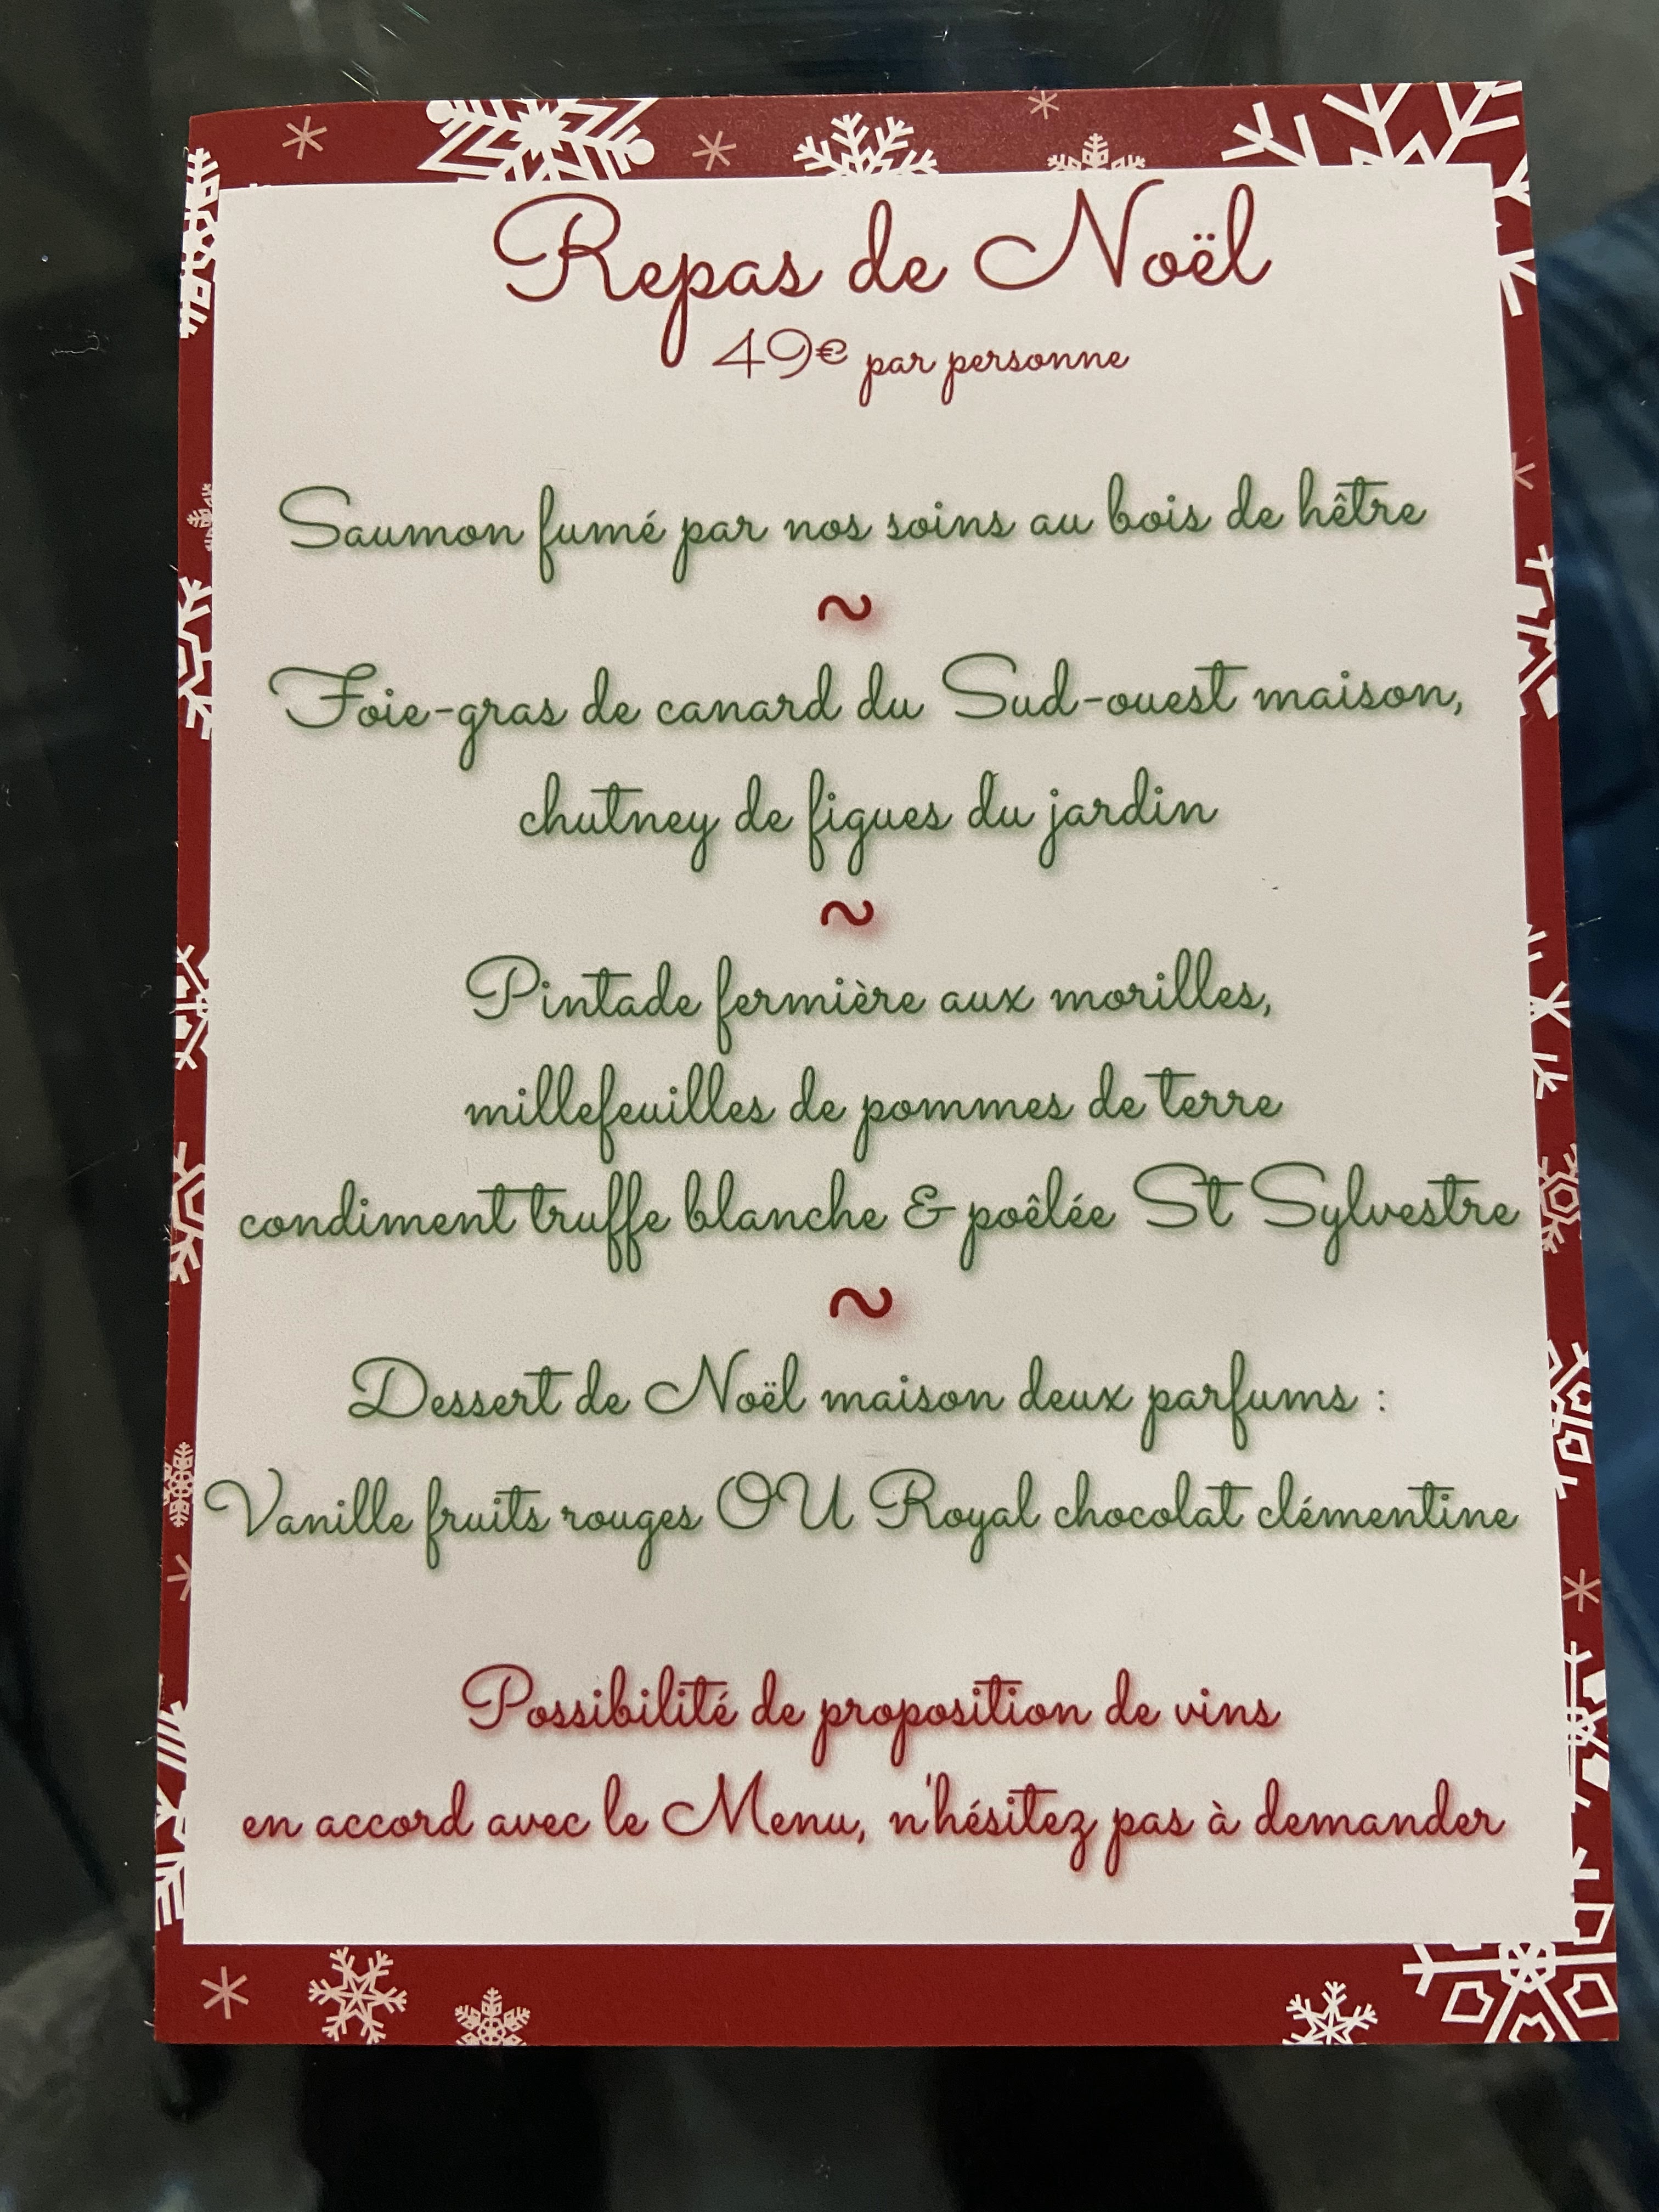 Repas de Noël
49€ par personne
Saumon fumé par nos soins au bois de hêtre
~
Foie-gras de canard du Sud-ouest maison,
chutney de figues du jardin
~
Pintade fermière aux morilles,
millefeuilles de pommes de terre
condiment truffe blanche & poêlée St Sylvestre
~
Dessert de Noël maison deux parfums :
Vanille fruits rouges OU Royal chocolat clémentine
Possibilité de proposition de vins
en accord avec le Menu, n'hésitez pas à demander